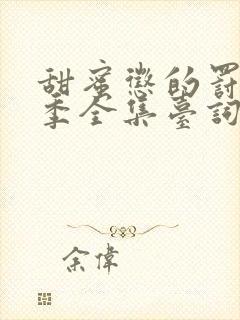 甜蜜懲的罰
季全集臺詞
余偉